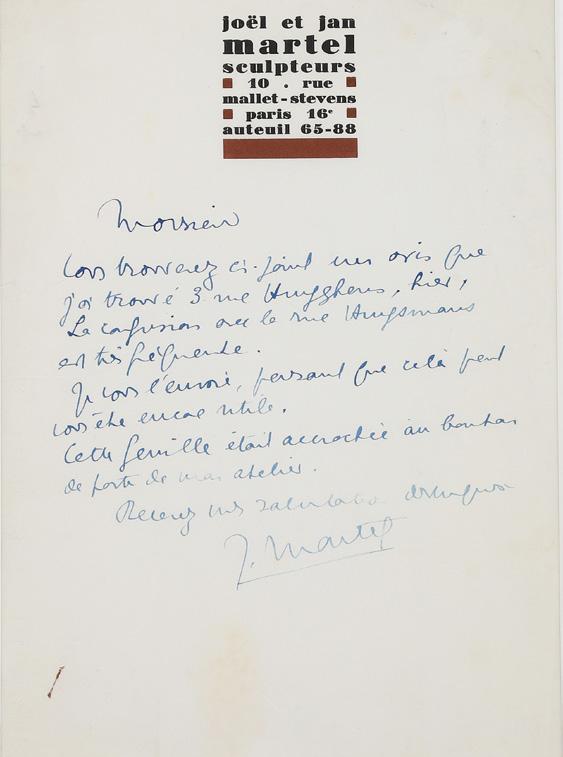 joël et jan
martel
sculpteurs
10 . rue
mallet-stevens
paris 16e
auteuil 65-88
Monsieur
Vous trouverez ci-joint un avis que
j'ai trouvé 3 rue Huygghens, hier,
La confusion avec le rue Huysmans
est très fréquente.
Je vous l'envoie, pensant que cela peut
vous être encore utile.
Cette feuille était accrochée au bouton
de porte de mon atelier.
Recevez mes salutations distinguées
J. Martel